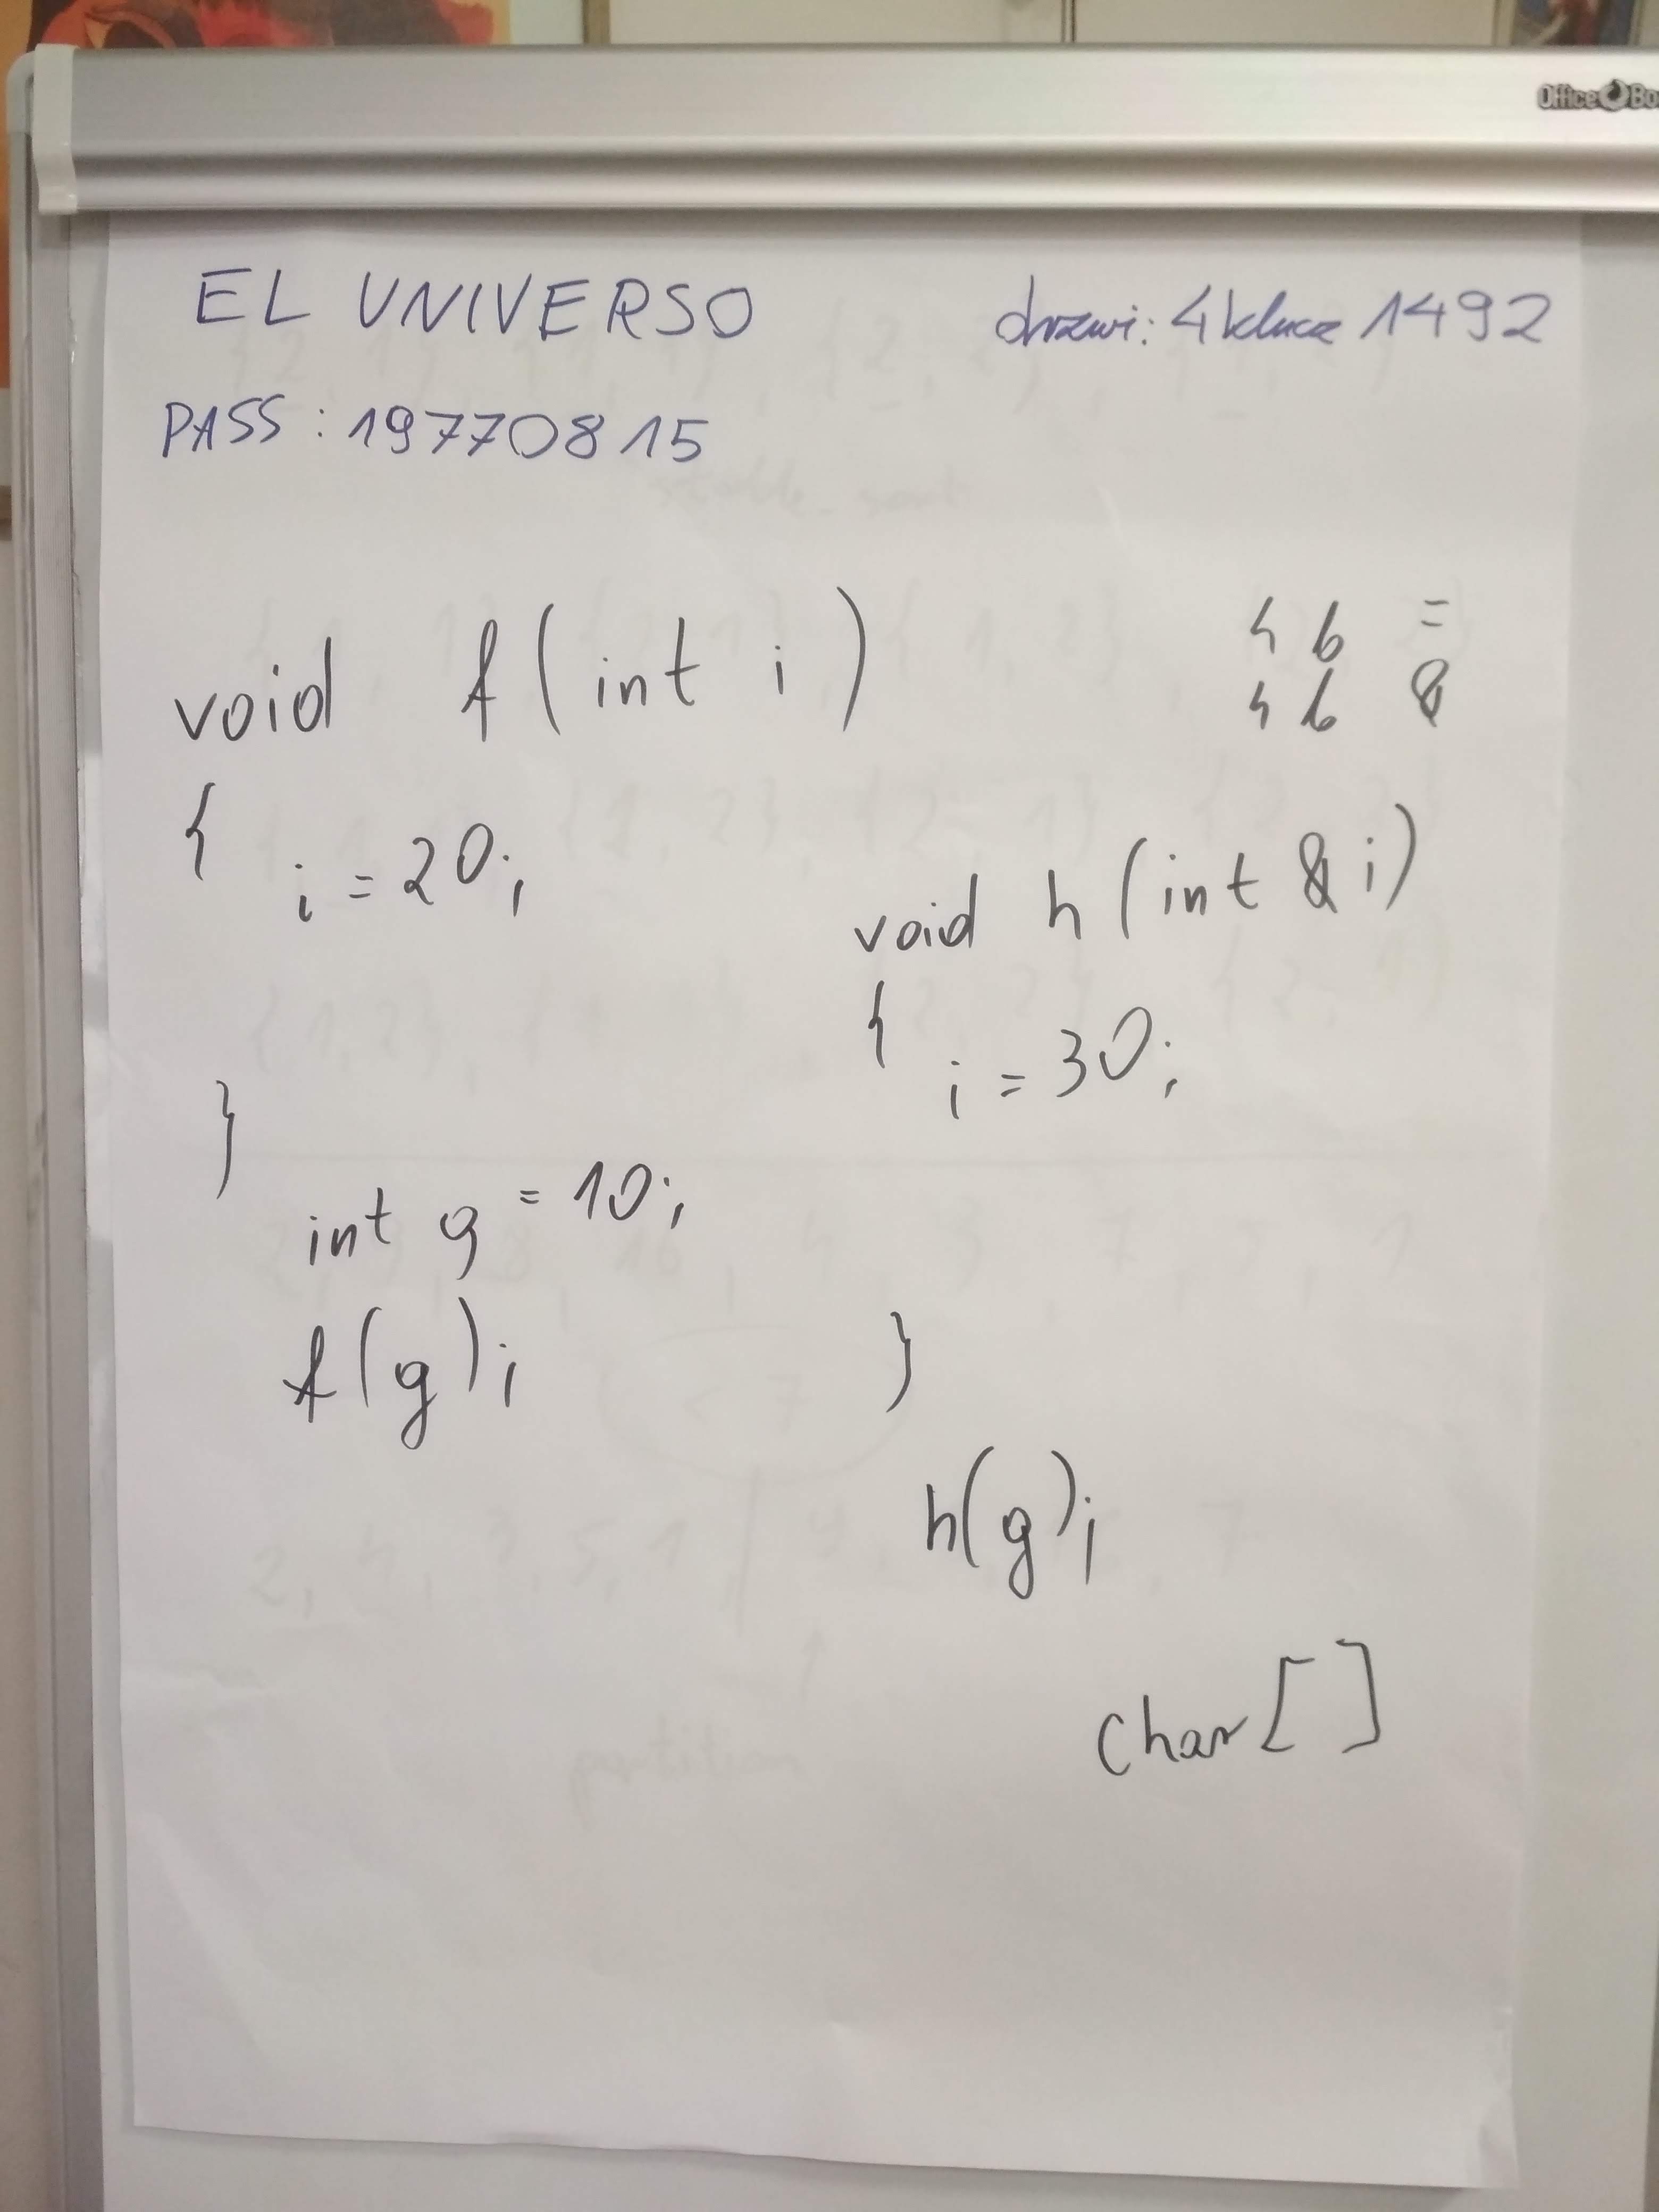 Office Bo
EL UNIVERSO
drzwi: 4 klucz 1492
PASS: 19770815
void f(int i)
{
i = 20;
}
int g = 10;
f(g);
4 b =
4 b &
void h(int & i)
{
i = 30;
}
h(g);
char[]